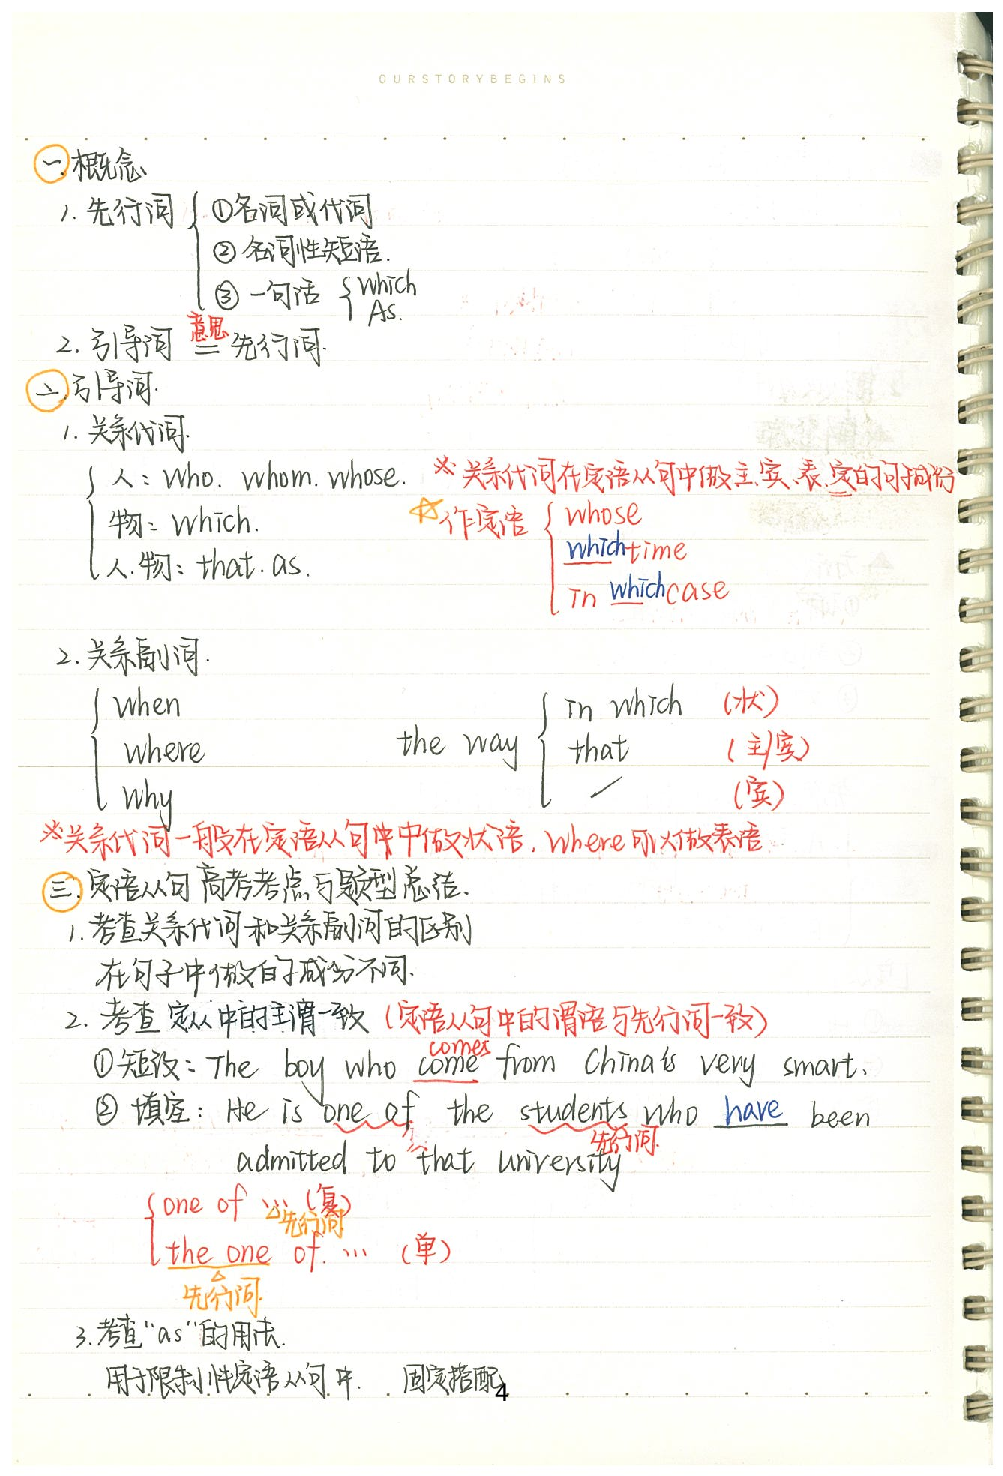 OURSTORYBEGINS
一.概念
1. 先行词 { ①名词或代词
②名词性短语.
③一句话 { which
As.
2. 引导词 意思= 先行词.
二.引导词.
1. 关系代词.
{ 人: who. whom. whose.
物: which.
人.物: that. as.
※关系代词在定语从句中做主.宾.表.定的句子成份
☆作定语 { whose
which time
in which case
2. 关系副词.
{ when
where
why
the way { in which (状)
that (主/宾)
╱ (宾)
※关系代词一般在定语从句中中做状语, where可以做表语
三. 定语从句高考考点与题型总结.
1. 考查关系代词和关系副词的区别
在句子中做的成分不同.
2. 考查定从中的主谓一致 (定语从句中的谓语与先行词一致)
comes
①短改: The boy who come from China is very smart.
②填空: He is one of the students who have been
先行词.
admitted to that university
{ one of … (复)
△先行词
the one of. … (单)
△
先行词.
3. 考查"as"的用法.
用于限制性定语从句中. 固定搭配
4